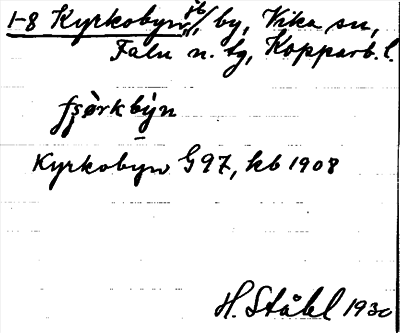 1-8 Kyrkobyn, by, Vika sn,
Falu n. tg, Kopparb. l.
Kyrkobyn G97, kb 1908
H. Ståhl 1930